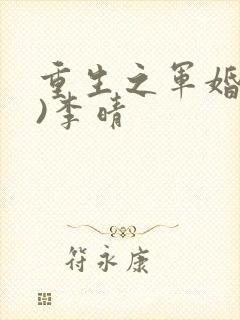 重生之军婚
)李晴
符永康